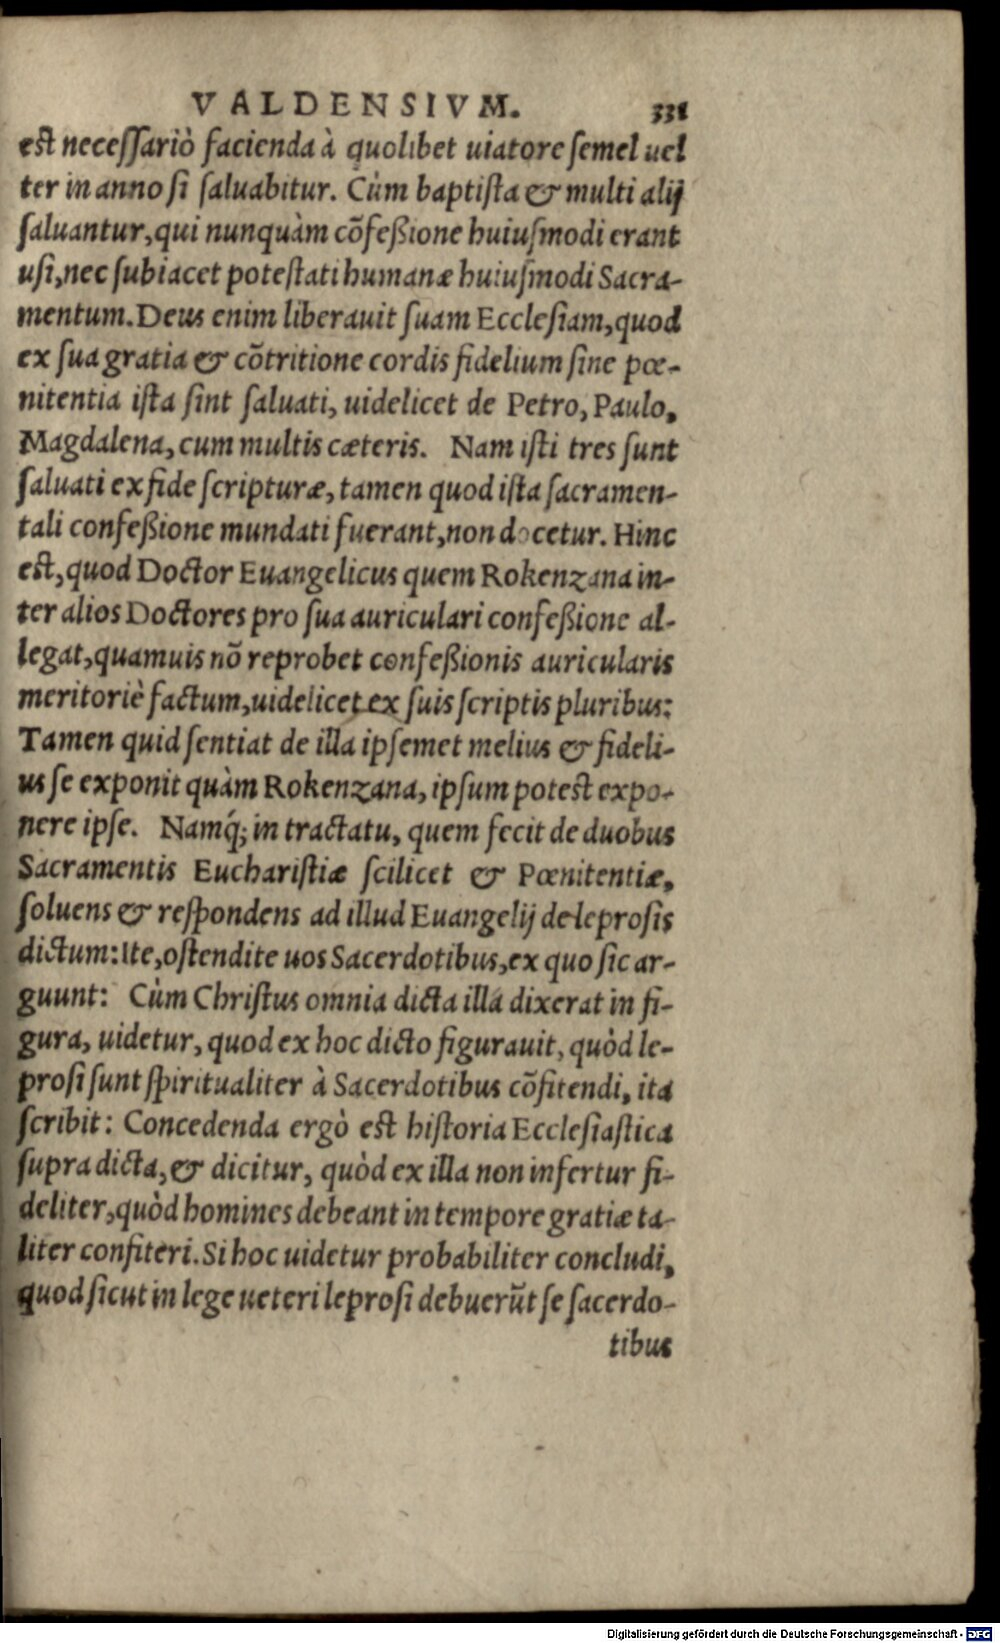 VALDENSIVM. 331
est necessariò facienda à quolibet uiatore semel uel
ter in anno si saluabitur. Cùm baptista & multi alij
saluantur, qui nunquàm cõfeßione huiusmodi erant
usi, nec subiacet potestati humanæ huiusmodi Sacra-
mentum. Deus enim liberauit suam Ecclesiam, quod
ex sua gratia & cõtritione cordis fidelium sine pœ-
nitentia ista sint saluati, uidelicet de Petro, Paulo,
Magdalena, cum multis cæteris. Nam isti tres sunt
saluati ex fide scripturæ, tamen quod ista sacramen-
tali confeßione mundati fuerant, non docetur. Hinc
est, quod Doctor Euangelicus quem Rokenzana in-
ter alios Doctores pro sua auriculari confeßione al-
legat, quamuis nõ reprobet confeßionis auricularis
meritoriè factum, uidelicet ex suis scriptis pluribus:
Tamen quid sentiat de illa ipsemet melius & fideli-
us se exponit quàm Rokenzana, ipsum potest expo-
nere ipse. Namq́; in tractatu, quem fecit de duobus
Sacramentis Eucharistiæ scilicet & Pœnitentiæ,
soluens & respondens ad illud Euangelij de leprosis
dictum: Ite, ostendite uos Sacerdotibus, ex quo sic ar-
guunt: Cùm Christus omnia dicta illa dixerat in fi-
gura, uidetur, quod ex hoc dicto figurauit, quòd le-
prosi sunt spiritualiter à Sacerdotibus cõfitendi, ita
scribit: Concedenda ergò est historia Ecclesiastica
supra dicta, & dicitur, quòd ex illa non infertur fi-
deliter, quòd homines debeant in tempore gratiæ ta-
liter confiteri. Si hoc uidetur probabiliter concludi,
quod sicut in lege ueteri leprosi debuerũt se sacerdo-
tibus
Digitalisierung gefördert durch die Deutsche Forschungsgemeinschaft - DFG